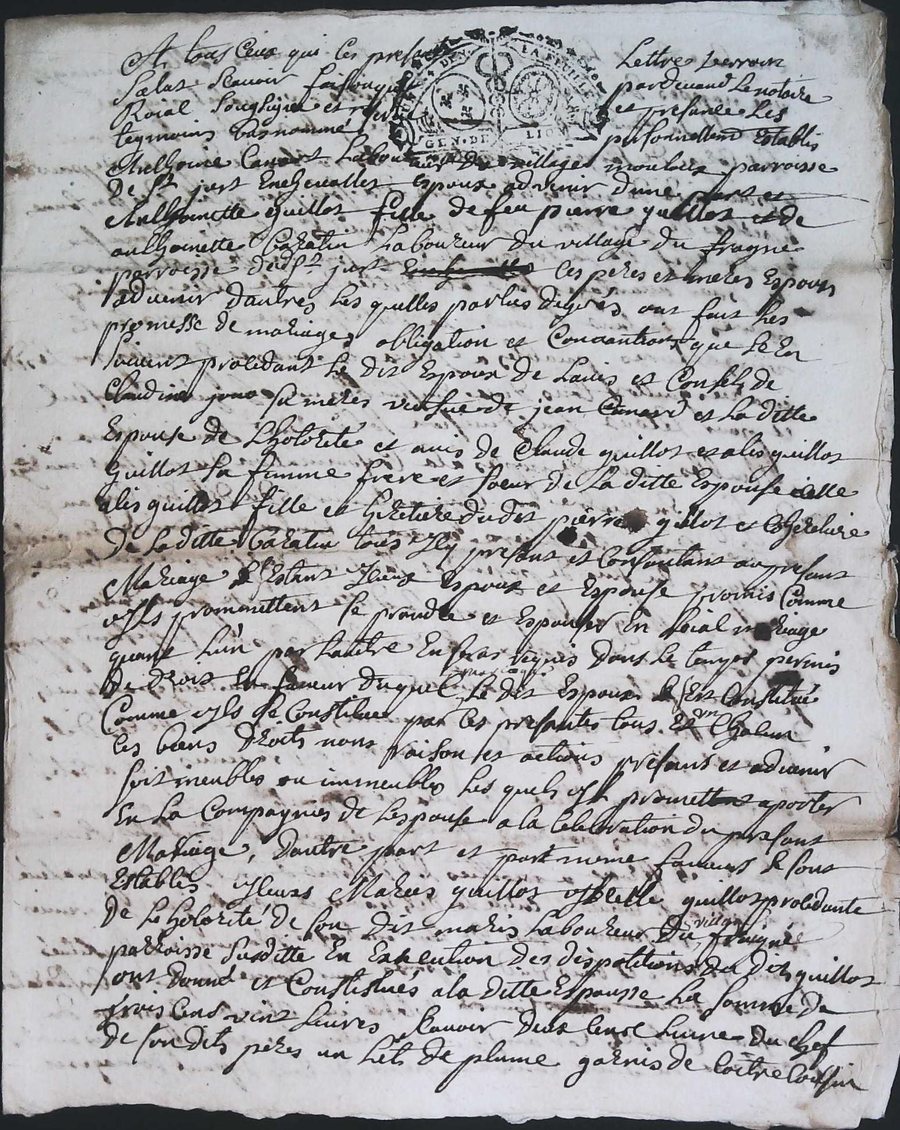 A tous ceux qui ces presentes Lettres verront
Salut Scavoir faisons que pardevand Le notaire
Roial Sousigné et presance Les
teymoins bas nommé personnellement Establis
Anthoine Canard Laboureur du village moulois parroisse
De St just Enchevallet Espoux advenir d'une part et
Anthoinette guillot fille de feu pierre guillot et de
anthoinette baratin Laboureur du village du fragne
parroisse dud St just ces peres et meres Espoux
advenir d'autres Les quelles parties de gres ont fait Les
promesse de mariage obligation et Convantion que Sen
Suivent procedant Le dit Espoux de Lavis et Conseil de
Claudine sa meres veufve de jean Canard et La ditte
Espouse de Lhotorité et avis de Claude guillot et alis guillot
guillot Sa femme frere et soeur de La ditte Espouse icelle
alis guillot fille et heretiere dudit pierre gillot et Cheretiere
De La ditte baratin tous Icy presant et Consentant au presant
Mariage Estant Iceux Espoux et Espouse promis Comme
ils promettent Se prandre et Espouser En Loial mariage
quand L'un par L'autre En Sera requis dans Le temps permis
De droit En faveur duquel Le dit Espoux Est Constitué
Comme ils Se Constitue par Ces presantes tous Et Un Chacun
Ces biens Droits noms raison et actions presant et advenir
Soit meubles ou immeubles Les quels promettent aporter
En La Compagnies de Lespouse a La Celebration du presant
Mariage, D'autre part et part meme faveurs Se Sont
Establis Maries guillot guillot procedante
De Lhotorité de Son Dit maris Laboureur Du village fraigne
parroisse Susditte En Execution Des dispotitions Du Dit guillot
ont Donné et Constitués a La ditte Espousse La Somme De
trois Cens vint Livres Scavoir Deux Cens Livres Du Chef
De Son dits peres un Lit de plume garnis de Coitre Coissin